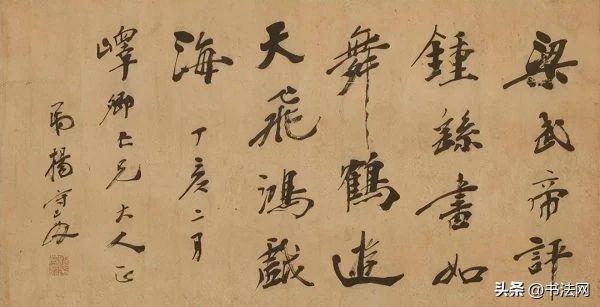 梁武帝評
鍾繇書如
舞鶴遊
天飛鴻戲
海 丁亥二月
嶧卿仁兄大人正
弟楊守敬
头条 @书法网